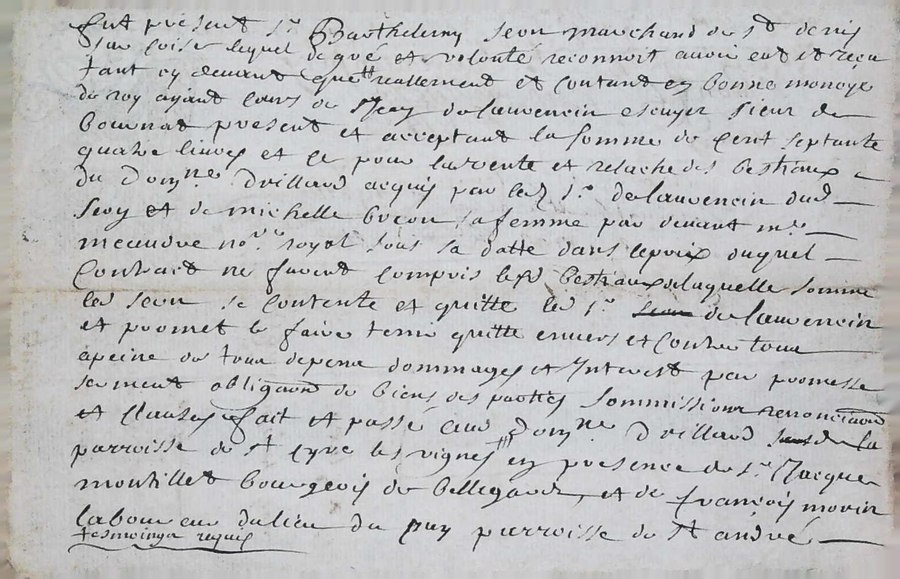 fut présent sr Barthelemy seon marchand de st denis
sur coise lequel de gré et volonté reconnoit avoir eut et receu
tant cy devant que reallement et contant en bonne monoye
du roy ayant cours de delauvencin escuyer sieur de
bournat present et acceptant la somme de cent septante
quatre livres et ce pour la vente et relache des bestiaux
du domne drillard acquis par led sr delauvencin dud
seoy et de michelle bocon sa femme par devant me
no.re royal sous sa datte dans leprix duquel
Contract ne furent compris lesd bestiaux delaquelle somme
led seon se contente et quitte led sr delauvencin
et promet le faire tenir quitte envers et contre tous
apeine de tous depens dommages et Interest par promesse
serment obligaon de biens des parties sommissions renonciaon
et clauses fait et passé aud domne drillard de la
parroisse de st cyre les vignes en presence de sr Jacques
montillet bourgeois de bellegarde, et de françois morin
laboureur dulieu du puy parroisse de st andré
tesmoings requis